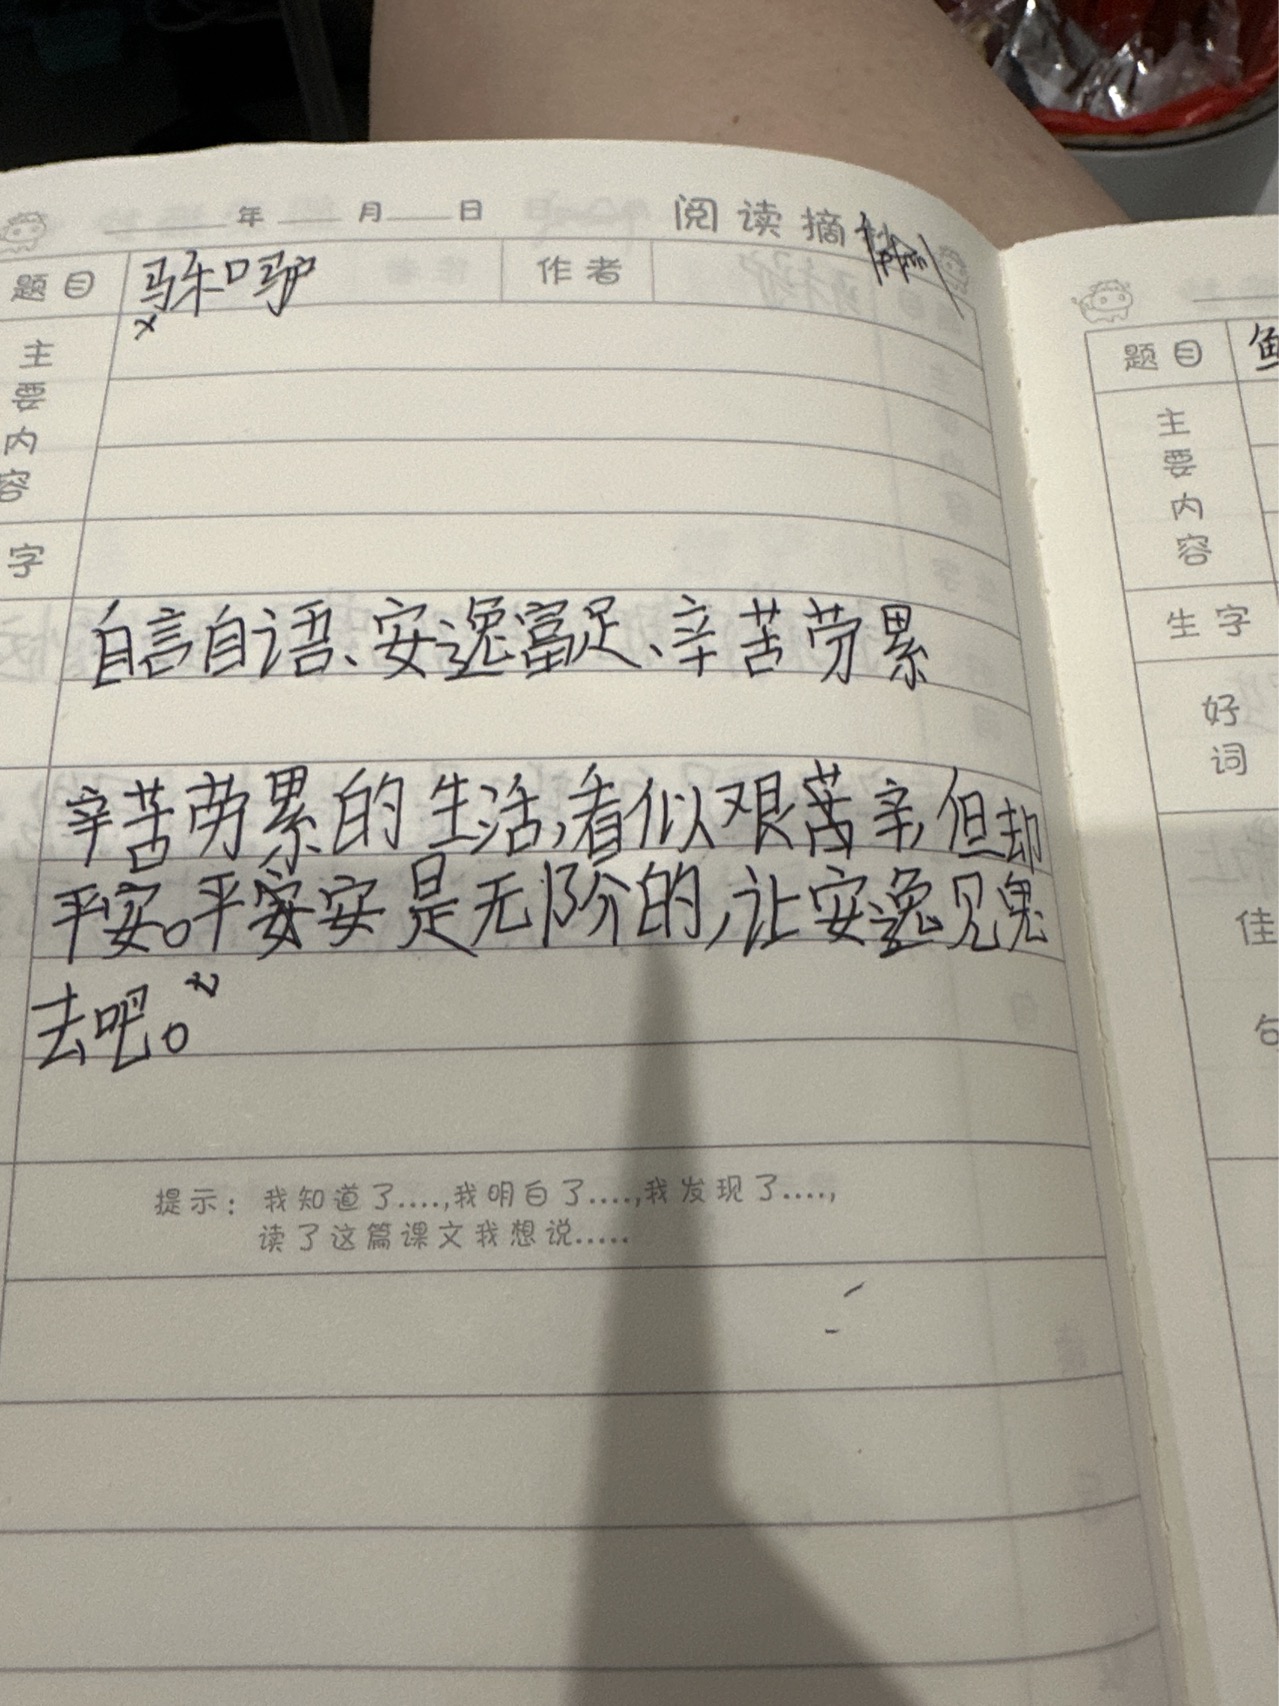 年 月 日 阅读摘
题目 口驴 作者
主要内容
字
自言自语、安逸富足、辛苦劳累
辛苦劳累的生活,看似艰苦辛,但却
平安。平安是无阶的,让安逸见鬼
去吧。
提示：我知道了....,我明白了....,我发现了....,
读了这篇课文我想说.....
题目 鱼
主要内容
生字
好词
佳句